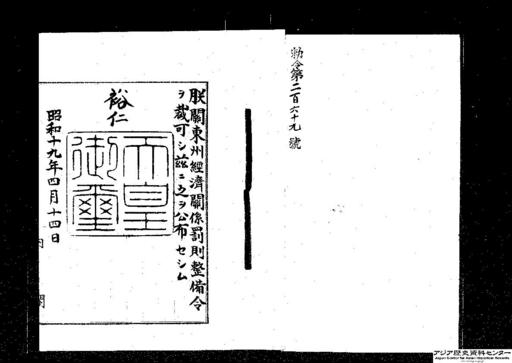 勅令第二百六十九號
朕關東州經濟關係罰則整備令
ヲ裁可シ茲ニ之ヲ公布セシム
裕仁
天皇
御璽
昭和十九年四月十四日
内閣
アジア歴史資料センター
Japan Center for Asian Historical Records